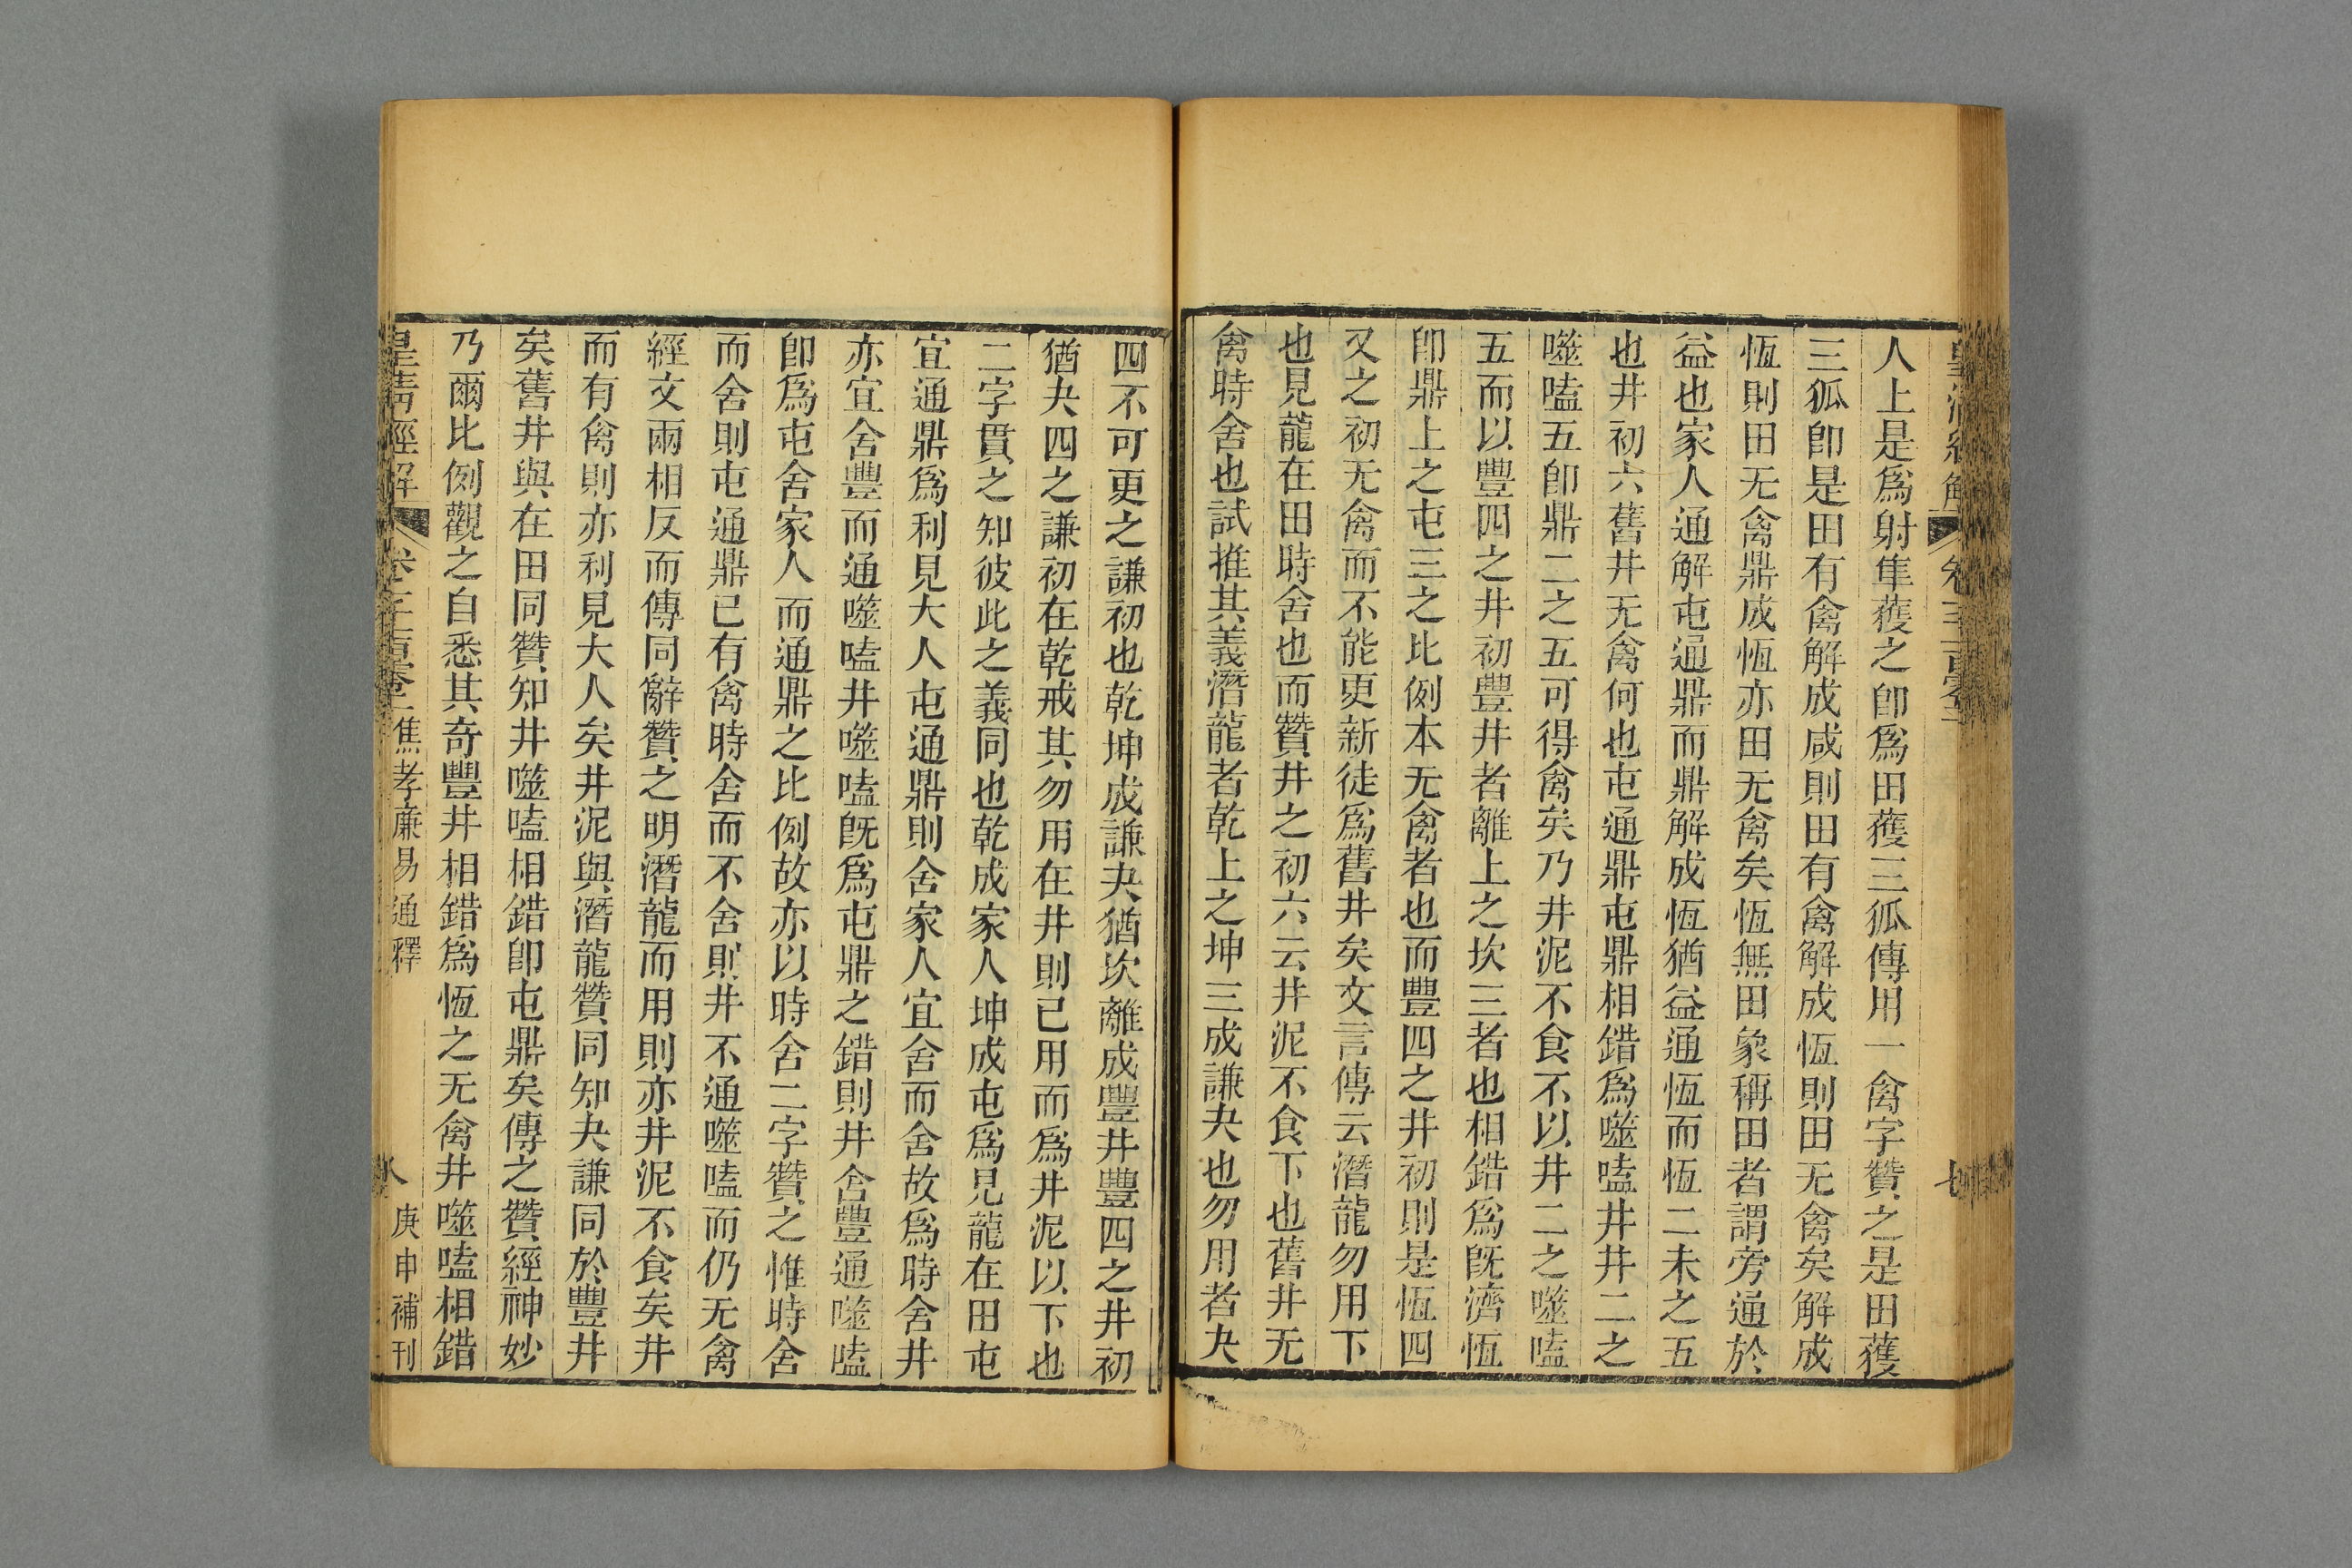 人上是爲射隼獲之卽爲田獲三狐傳用一禽字贊之是田獲
三狐卽是田有禽解成咸則田有禽解成恆則田无禽矣解成
恆則田无禽鼎成恆亦田无禽矣恆無田象稱田者謂旁通於
益也家人通解屯通鼎而鼎解成恆猶益通恆而恆二未之五
也井初六舊井无禽何也屯通鼎屯鼎相錯爲噬嗑井井二之
噬嗑五卽鼎二之五可得禽矣乃井泥不食不以井二之噬嗑
五而以豐四之井初豐井者離上之坎三者也相錯爲旣濟恆
卽鼎上之屯三之比例本无禽者也而豐四之井初則是恆四
又之初无禽而不能更新徒爲舊井矣文言傳云潛龍勿用下
也見龍在田時舍也而贊井之初六云井泥不食下也舊井无
禽時舍也試推其義潛龍者乾上之坤三成謙夬也勿用者夬
四不可更之謙初也乾坤成謙夬猶坎離成豐井豐四之井初
猶夬四之謙初在乾戒其勿用在井則已用而爲井泥以下也
二字貫之知彼此之義同也乾成家人坤成屯爲見龍在田屯
宜通鼎爲利見大人屯通鼎則舍家人宜舍而舍故爲時舍井
亦宜舍豐而通噬嗑井噬嗑旣爲屯鼎之錯則井舍豐通噬嗑
卽爲屯舍家人而通鼎之比例故亦以時舍二字贊之惟時舍
而舍則屯通鼎已有禽時舍而不舍則井不通噬嗑而仍无禽
經文兩相反而傳同辭贊之明潛龍而用則亦井泥不食矣井
而有禽則亦利見大人矣井泥與潛龍贊同知夬謙同於豐井
矣舊井與在田同贊知井噬嗑相錯卽屯鼎矣傳之贊經神妙
乃爾比例觀之自悉其奇豐井相錯爲恆之无禽井噬嗑相錯
皇淸經解 焦孝廉易通釋 庚申補刊